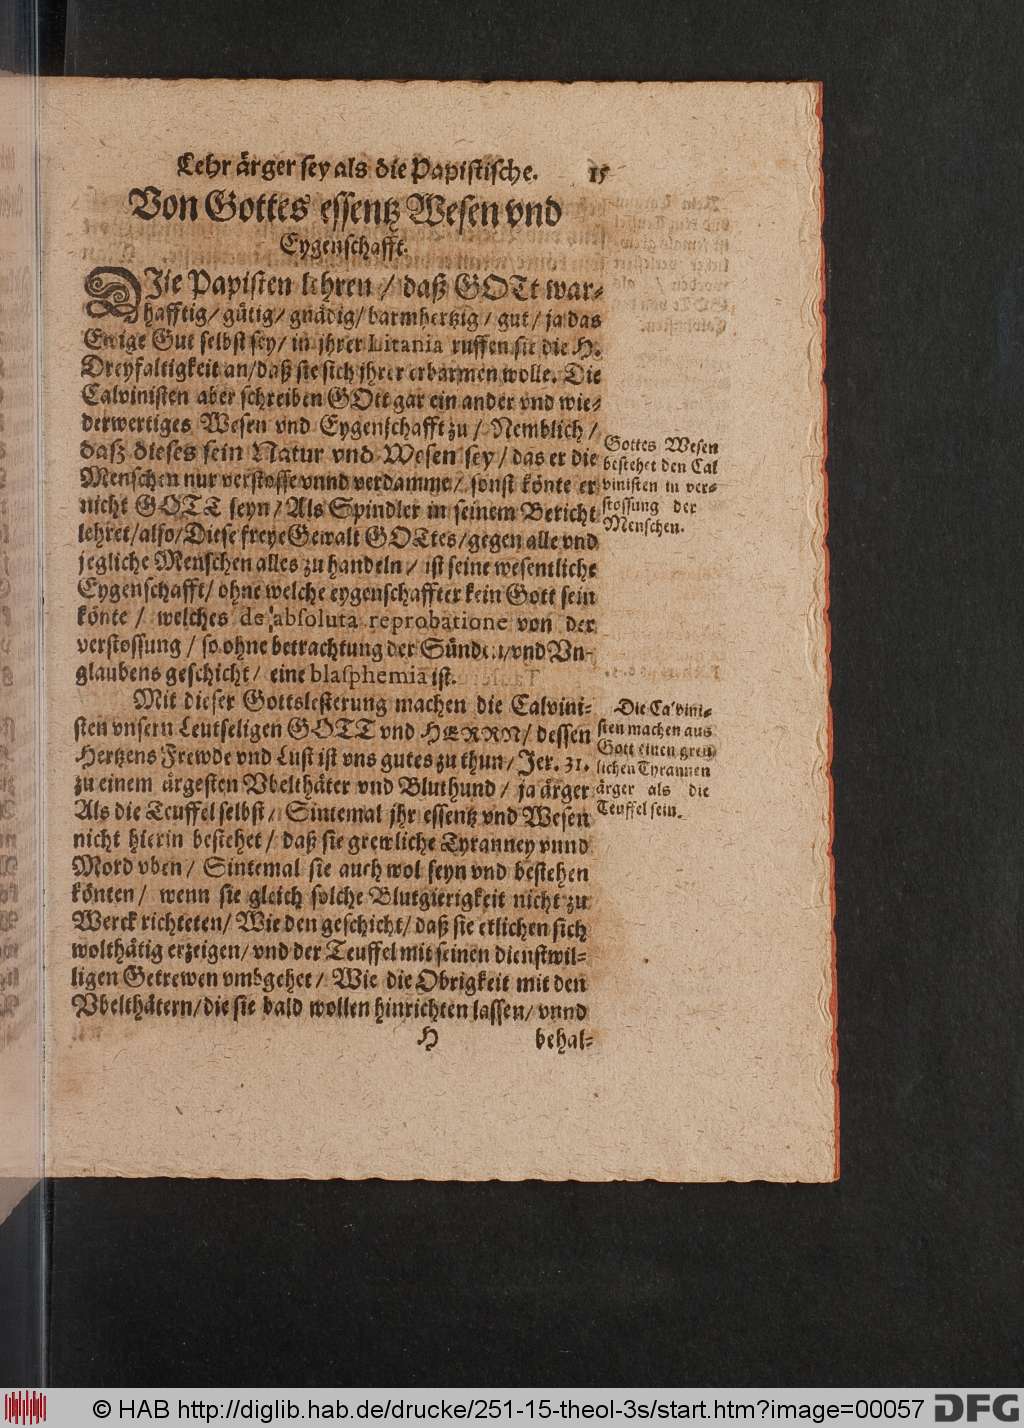 Lehr ärger sey als die Papistische. 15
Von Gottes essentz Wesen vnd
Eygenschafft.
DIe Papisten lehren / daß GOTt war-
hafftig / gütig / gnädig / barmhertzig / gut / ja das
Ewige Gut selbst sey / in jhrer Litania ruffen sie die H.
Dreyfaltigkeit an / daß sie sich jhrer erbarmen wolle. Die
Calvinisten aber schreiben GOtt gar ein ander vnd wie-
derwertiges Wesen vnd Eygenschafft zu / Nemblich /
daß dieses sein Natur vnd Wesen sey / das er die
Menschen nur verstosse vnnd verdamme / sonst könte er
nicht GOTT seyn / Als Spindler in seinem Bericht
lehret / also / Diese freye Gewalt GOTtes / gegen alle vnd
jegliche Menschen alles zu handeln / ist seine wesentliche
Eygenschafft / ohne welche eygenschaffter kein Gott sein
könte / welches de absoluta reprobatione von der
verstossung / so ohne betrachtung der Sünden / vnd Vn-
glaubens geschicht / eine blasphemia ist.
Gottes Wesen
bestehet den Cal
vinisten in ver-
stossung der
Menschen.
Mit dieser Gottslesterung machen die Calvini-
sten vnsern Leutseligen GOTT vnd HERRN / dessen
Hertzens Frewde vnd Lust ist vns gutes zu thun / Jer. 31.
zu einem ärgesten Vbelthäter vnd Bluthund / ja ärger
Als die Teuffel selbst / Sintemal jhr essentz vnd Wesen
nicht hierin bestehet / daß sie grewliche Tyranney vnnd
Mord vben / Sintemal sie auch wol seyn vnd bestehen
könten / wenn sie gleich solche Blutgierigkeit nicht zu
Werck richteten / Wie den geschicht / daß sie etlichen sich
wolthätig erzeigen / vnd der Teuffel mit seinen dienstwil-
ligen Getrewen vmbgehet / Wie die Obrigkeit mit den
Vbelthätern / die sie bald wollen hinrichten lassen / vnnd
Die Calvini-
sten machen aus
Gott einen greu
lichen Tyrannen
ärger als die
Teuffel sein.
H behal-
© HAB http://diglib.hab.de/drucke/251-15-theol-3s/start.htm?image=00057 DFG